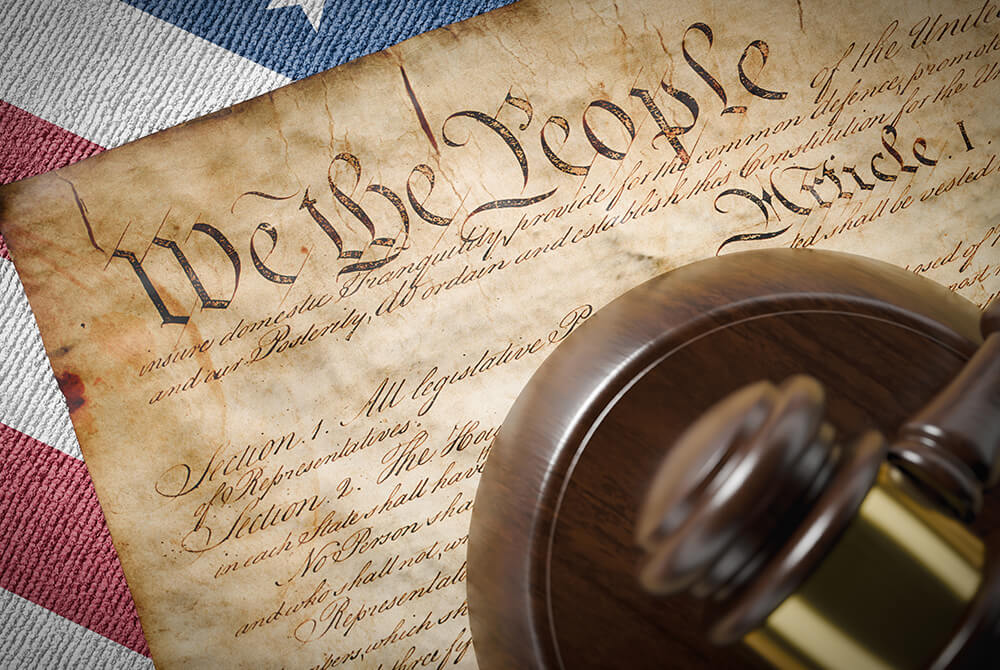 We the People of the United
insure domestic Tranquility, provide for the common defence, promote
and our Posterity, do ordain and establish this Constitution for the
Article. I.
Section. 1. All legislative shall be vested
of Representatives.
Section. 2. The
in each State shall
No Person
and who shall not,
Representatives
which
three